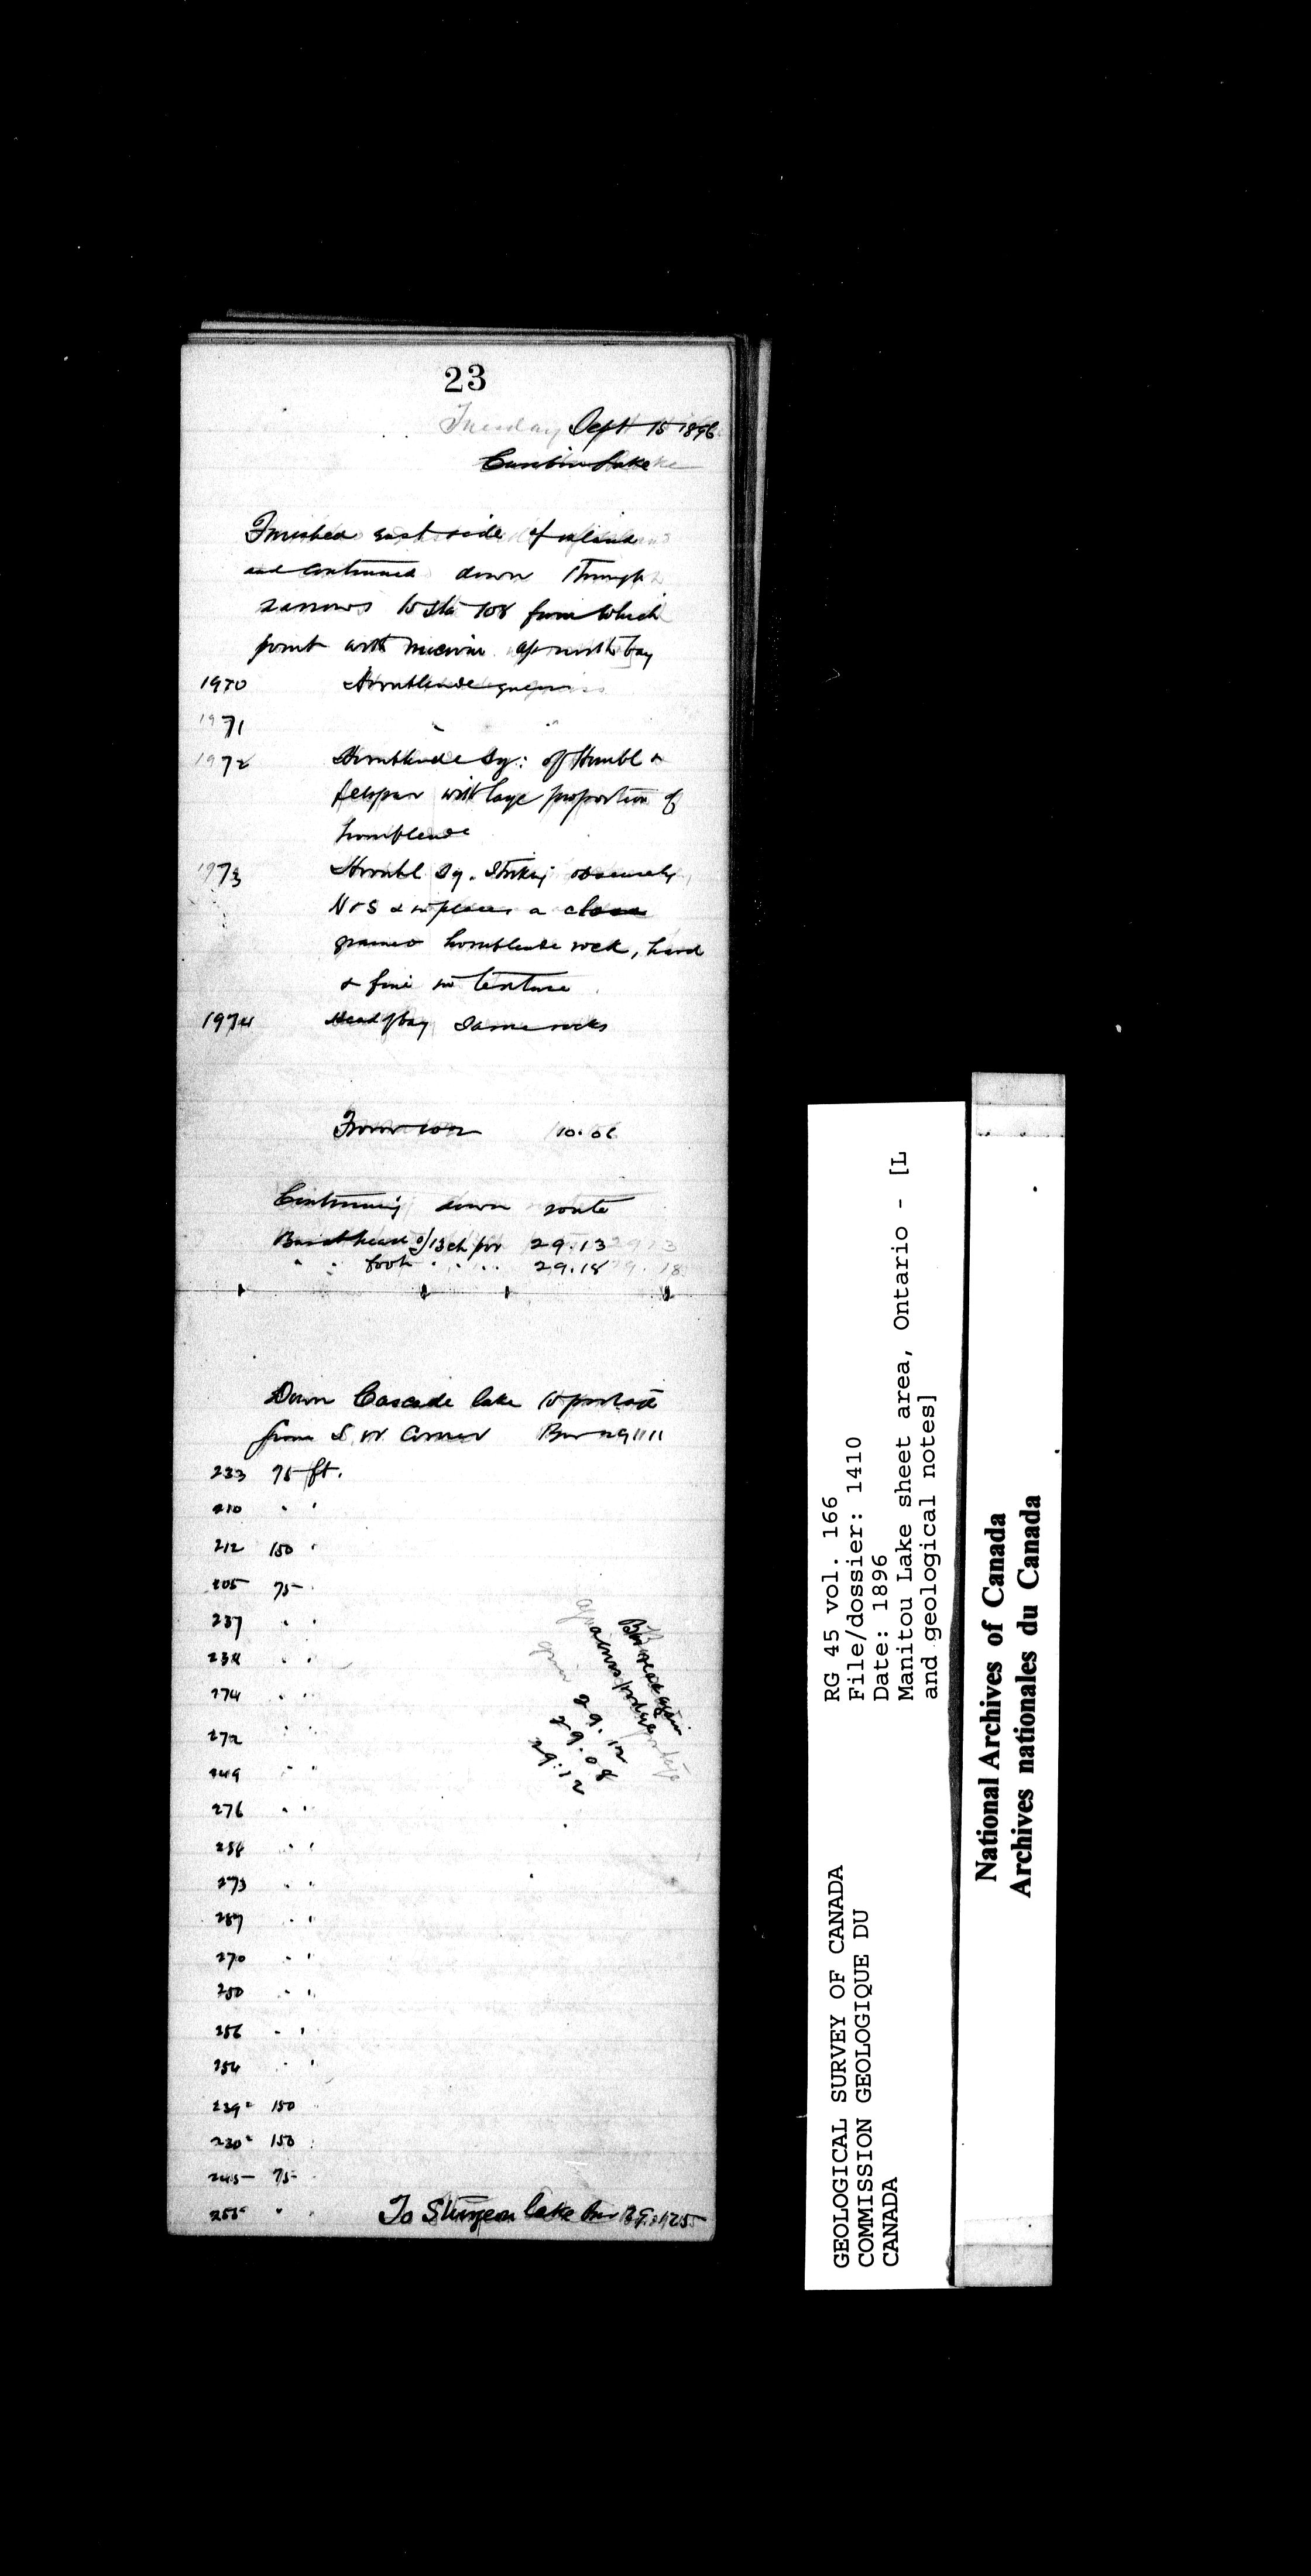 23
Tuesday Sept 15 1896
Lake
Finished east side of island
and continued down through
narrows to sta 108 from which
point with up north bay
1970 Hornblende gneiss
1971 " "
1972 Hornblende Sy: of Hornbl &
felspar with large proportion of
hornblende
1973 Hornbl Sy. Striking obscurely
N & S & in places a close
grained hornblende rock, hard
& fine in texture
1974 Head of bay Same rocks
From 10.06
Continuing down route
Bar at head of 13 ch por 29.13
" " foot " " " 29.18
Down Cascade lake to portage
from S.W. Corner Bar
233 75 ft.
210 " "
212 150 "
205 75 "
237 " "
238 " "
274 " "
272 " "
249 " "
276 " "
254 " "
273 " "
287 " "
270 " "
250 " "
256 " "
254 " "
239° 150
230° 150
245 75
255° "
again
across portage
29.12
29.08
29.12
To Sturgeon lake
RG 45 vol. 166
File/dossier: 1410
Date: 1896
Manitou Lake sheet area, Ontario - [L
and geological notes]
GEOLOGICAL SURVEY OF CANADA
COMMISSION GEOLOGIQUE DU
CANADA
National Archives of Canada
Archives nationales du Canada